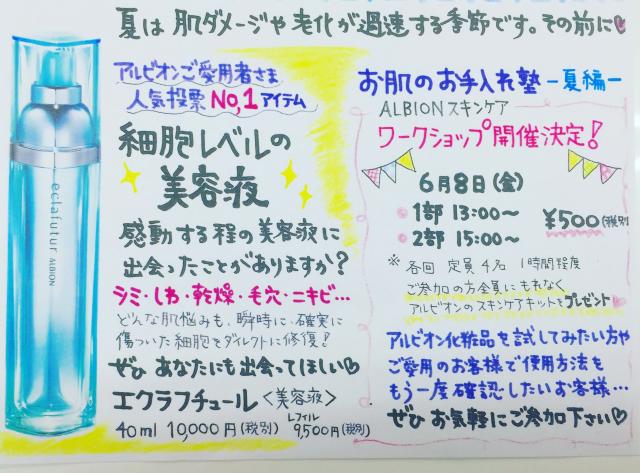 夏は肌ダメージや老化が過速する季節です。その前に♡
アルビオンご愛用者さま
人気投票No,1アイテム
細胞レベルの
美容液
感動する程の美容液に
出会ったことがありますか？
シミ・しわ・乾燥・毛穴・ニキビ…
どんな肌悩みも、瞬時に、確実に
傷ついた細胞をダイレクトに修復！
ぜひあなたにも出会ってほしい♡
エクラフチュール〈美容液〉
40ml 10,000円(税別) レフィル 9,500円(税別)
eclafutur ALBION
お肌のお手入れ塾 -夏編-
ALBIONスキンケア
ワークショップ開催決定！
6月8日(金)
1部 13:00〜
2部 15:00〜
¥500(税別)
※ 各回 定員4名 1時間程度
ご参加の方全員にもれなく
アルビオンのスキンケアキットをプレゼント♡
アルビオン化粧品を試してみたい方や
ご愛用のお客様で使用方法を
もう一度確認したいお客様…
ぜひお気軽にご参加下さい♡